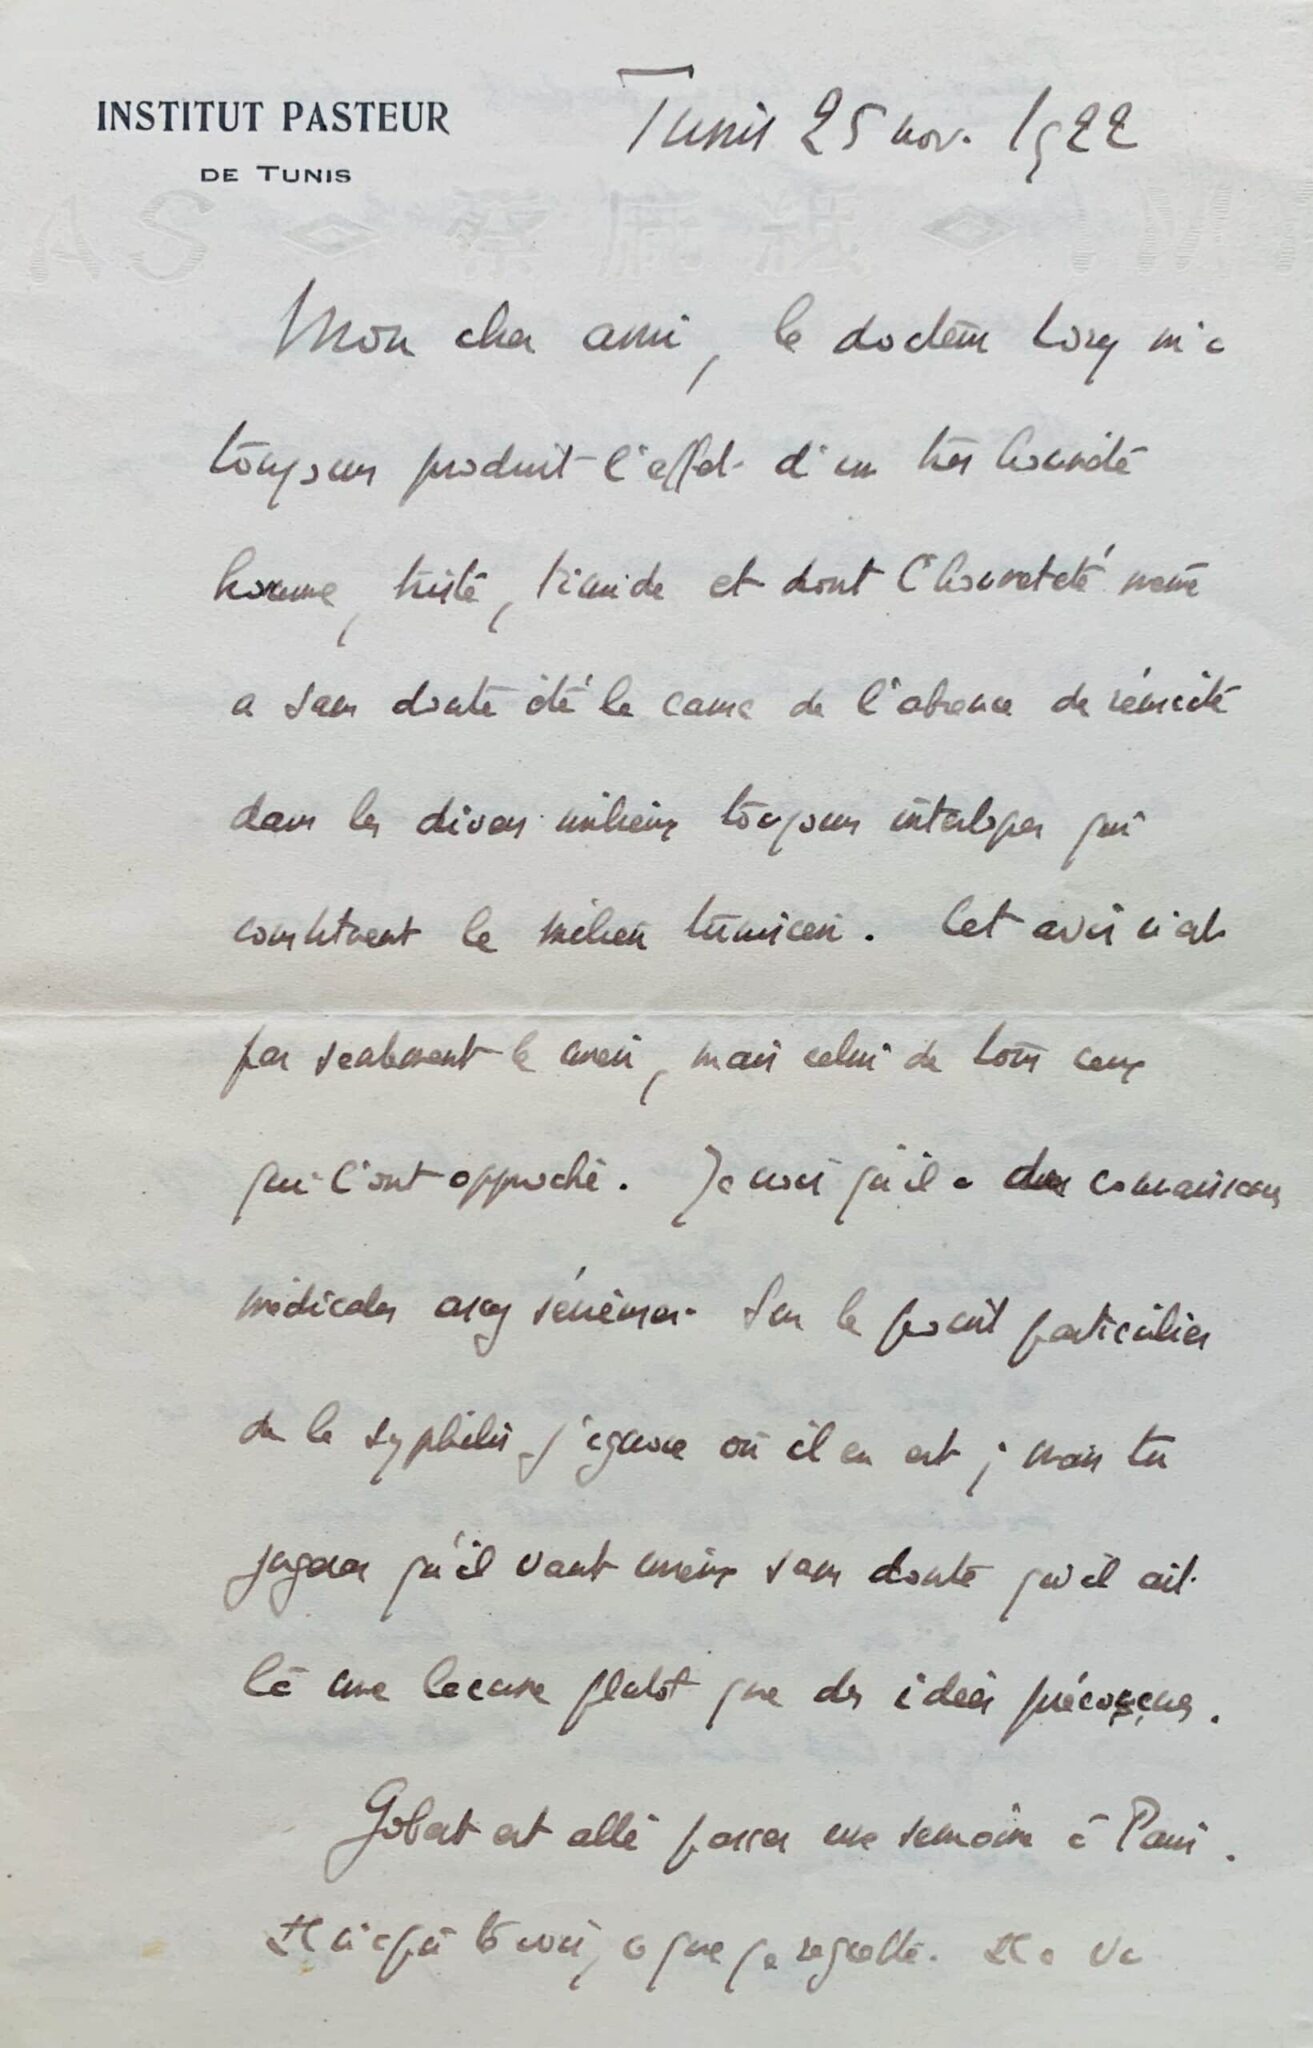 INSTITUT PASTEUR
DE TUNIS
Tunis 25 nov. 1922
Mon cher ami, le docteur Lévy m'a
toujours produit l'effet d'un très honnête
homme, triste, timide et dont l'honnêteté même
a sans doute été la cause de l'absence de réussite
dans les divers milieux toujours interlopes qui
constituent le milieu tunisien. Cet avis n'est
pas seulement le mien, mais celui de tous ceux
qui l'ont approché. Je crois qu'il a des connaissances
médicales assez sérieuses. Sur le point particulier
de la syphilis j'ignore où il en est ; mais tu
jugeras qu'il vaut mieux sans doute qu'il ait
là une lacune plutôt que des idées préconçues.
Gobert est allé passer une semaine à Paris.
Il n'a pu te voir, ce que je regrette. Il a vu